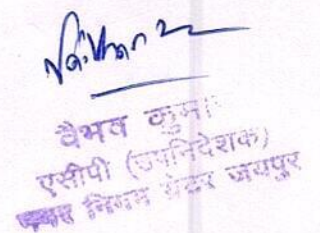 वैभव कुमार
एसीपी (उपनिदेशक)
नगर निगम ग्रेटर जयपुर